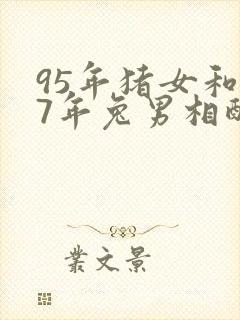 95年猪女和
7年兔男相配
業文景